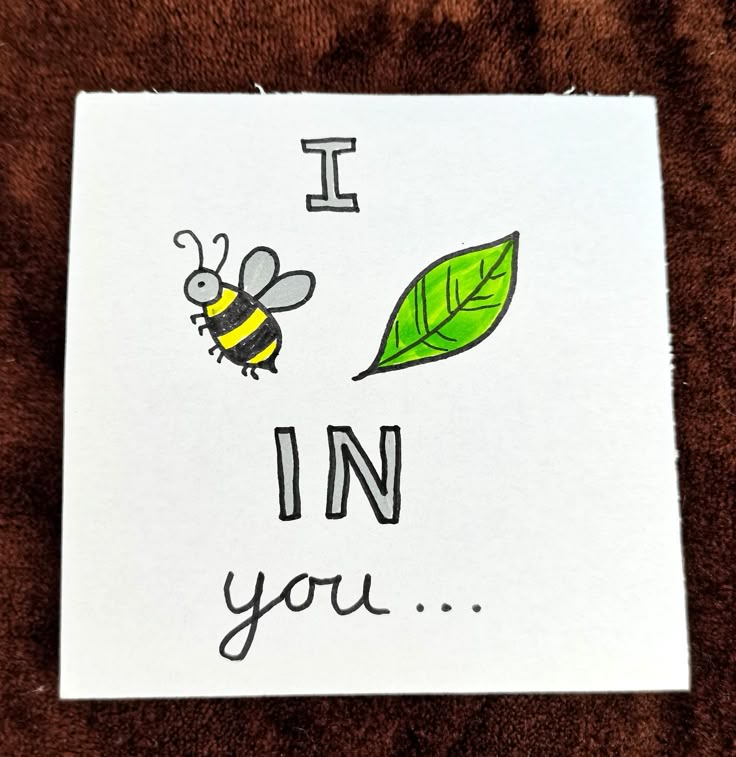 I
IN
you...